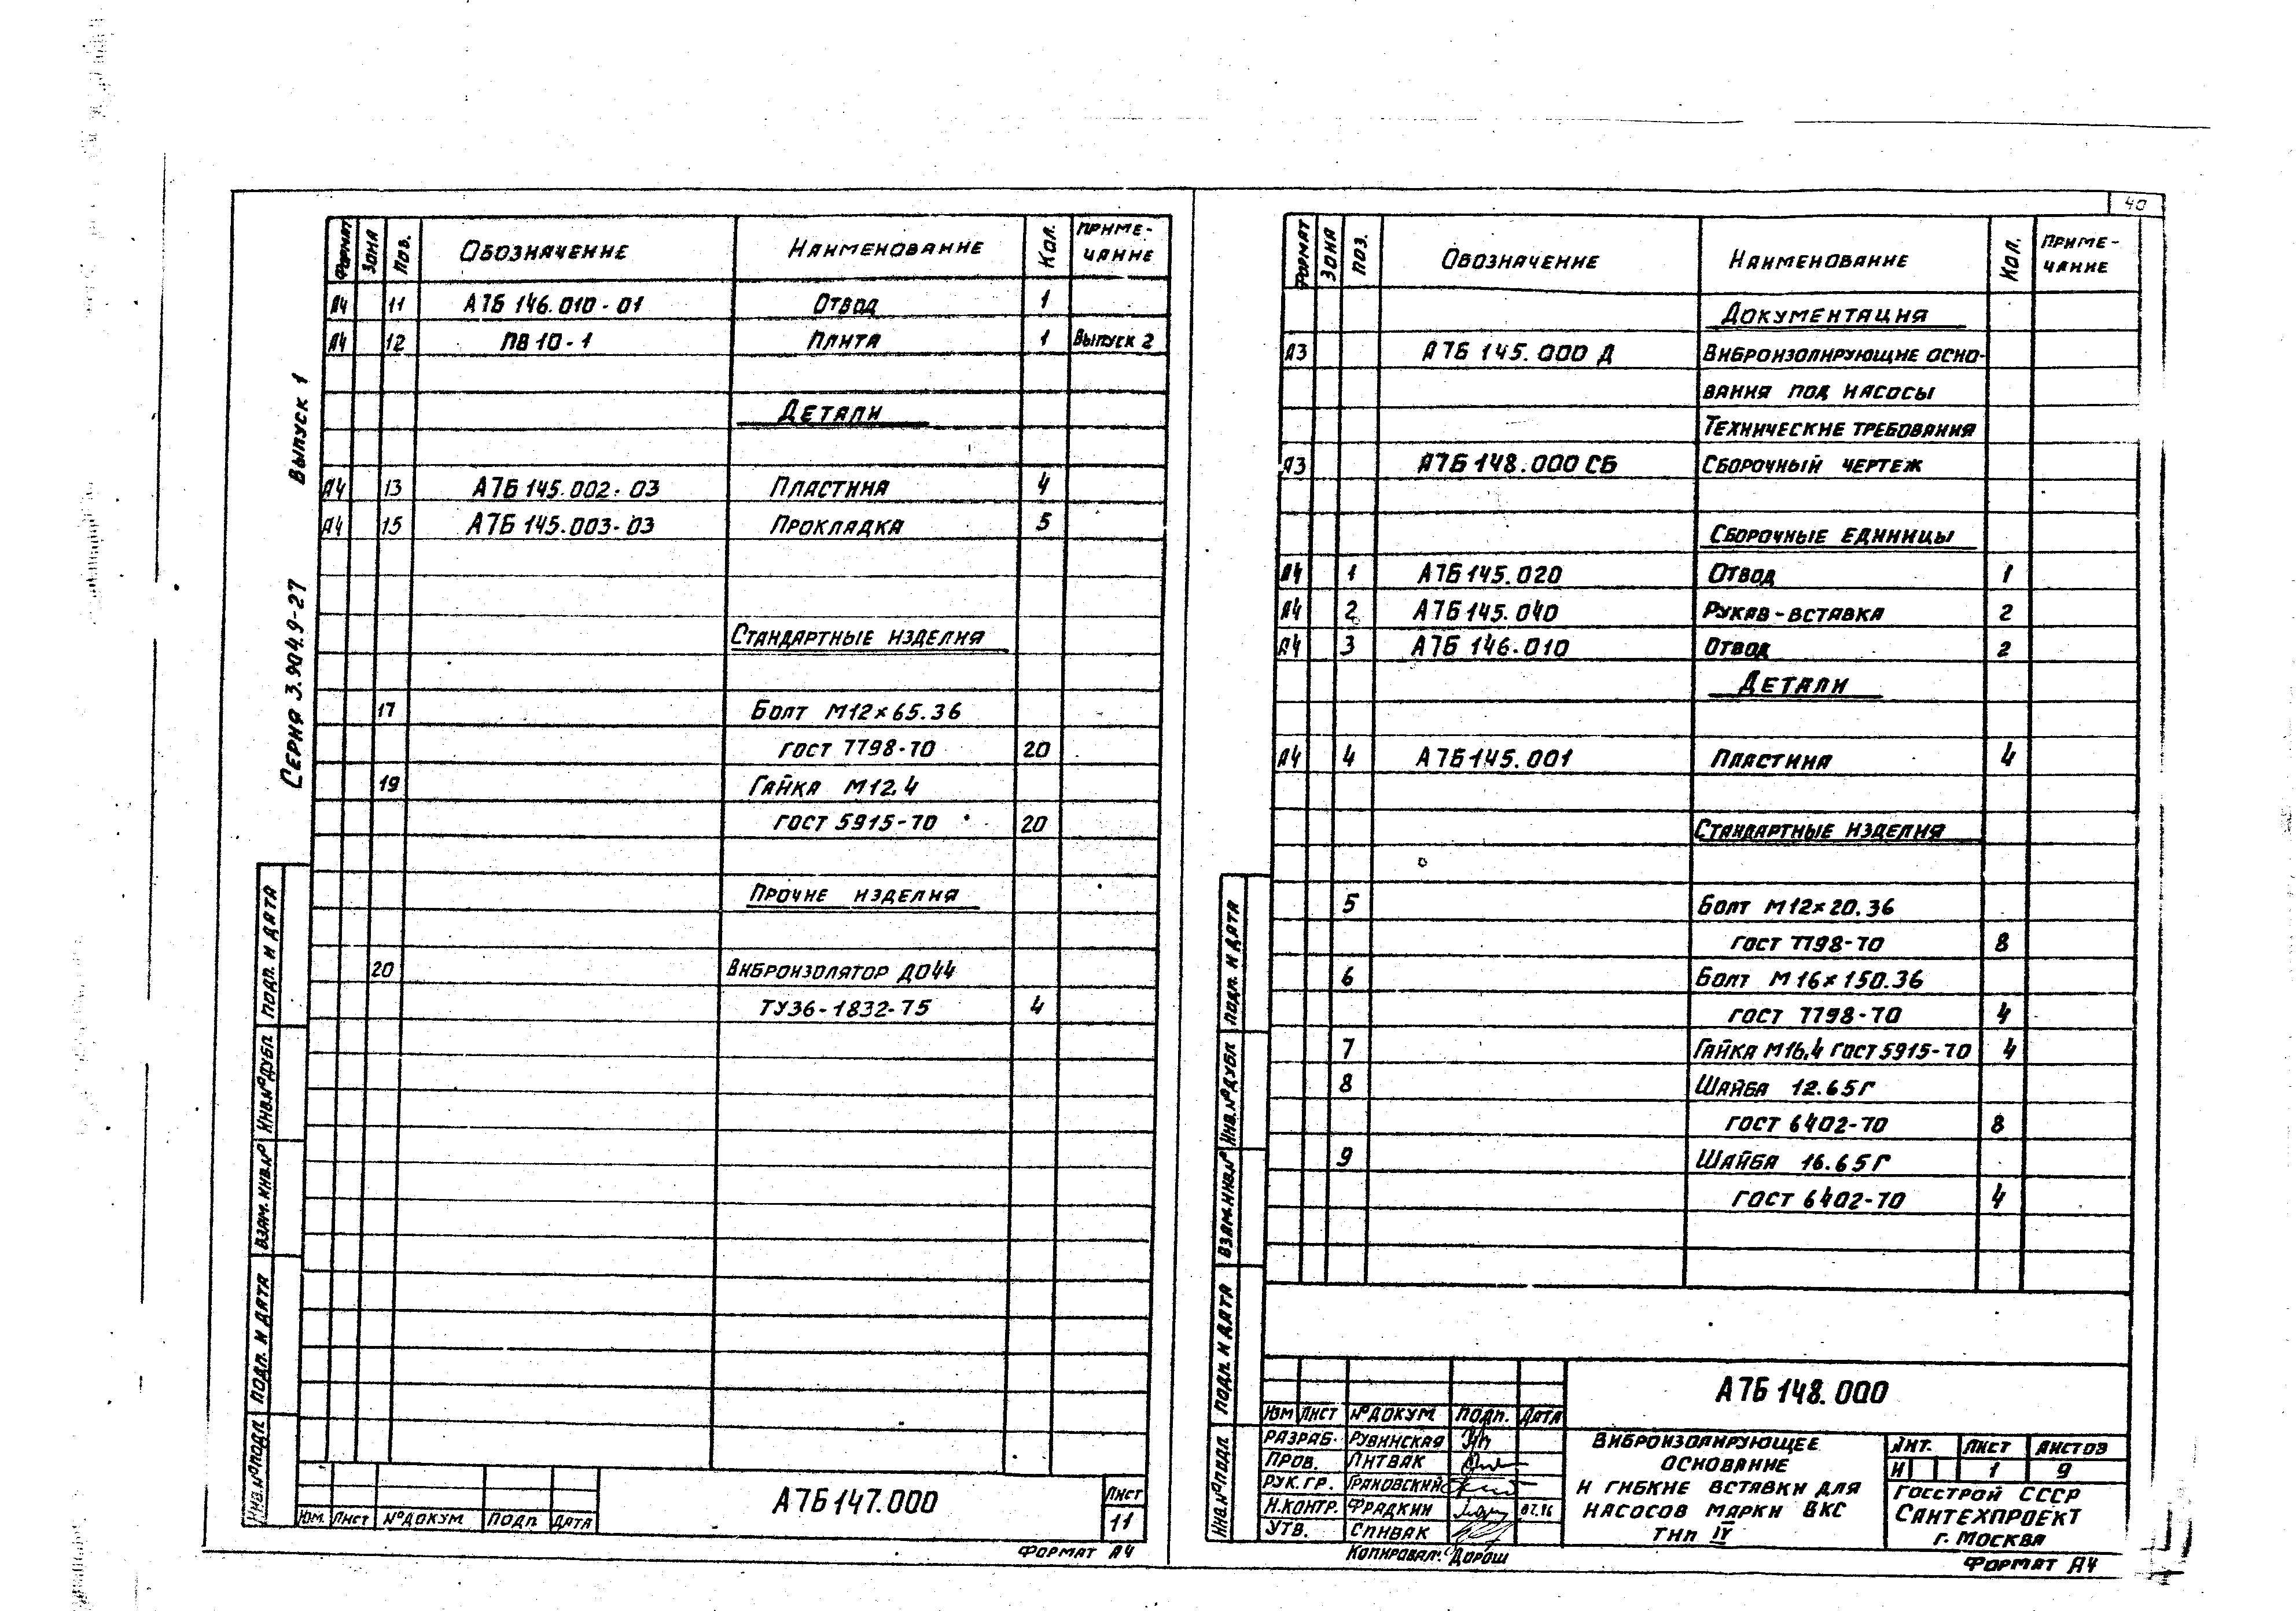 40
Серия 3.904.9-27 Выпуск 1
Формат Зона Поз. Обозначение Наименование Кол. Приме-
чание
А4 11 А7Б 146.010-01 Отвод 1
А4 12 ПВ 10-1 Плита 1 Выпуск 2
Детали
А4 13 А7Б 145.002-03 Пластина 4
А4 15 А7Б 145.003-03 Прокладка 5
Стандартные изделия
17 Болт М12×65.36
ГОСТ 7798-70 20
19 Гайка М12.4
ГОСТ 5915-70 20
Прочие изделия
20 Виброизолятор ДО44
ТУ36-1832-75 4
Подп. и дата
Инв.№дубл.
Взам.инв.№
Подп. и дата
Инв.№подл.
Изм Лист №докум Подп. Дата
А7Б 147.000
Лист
11
Формат А4
Формат Зона Поз. Обозначение Наименование Кол. Приме-
чание
Документация
А3 А7Б 145.000 Д Виброизолирующие осно-
вания под насосы
Технические требования
А3 А7Б 148.000 СБ Сборочный чертеж
Сборочные единицы
А4 1 А7Б 145.020 Отвод 1
А4 2 А7Б 145.040 Рукав-вставка 2
А4 3 А7Б 146.010 Отвод 2
Детали
А4 4 А7Б 145.001 Пластина 4
Стандартные изделия
5 Болт М12×20.36
ГОСТ 7798-70 8
6 Болт М16×150.36
ГОСТ 7798-70 4
7 Гайка М16.4 ГОСТ 5915-70 4
8 Шайба 12.65Г
ГОСТ 6402-70 8
9 Шайба 16.65Г
ГОСТ 6402-70 4
Подп. и дата
Инв.№дубл.
Взам.инв.№
Подп. и дата
Инв.№подл.
А7Б 148.000
Изм Лист №докум Подп. Дата
Разраб. Рувинская
Пров. Литвак
Рук.гр. Граковский
Н.контр. Фрадкин
Утв. Спивак
Виброизолирующее
основание
и гибкие вставки для
насосов марки ВКС
Тип IV
Лит. Лист Листов
И 1 9
Госстрой СССР
Сантехпроект
г. Москва
Копировал: Дорош
Формат А4